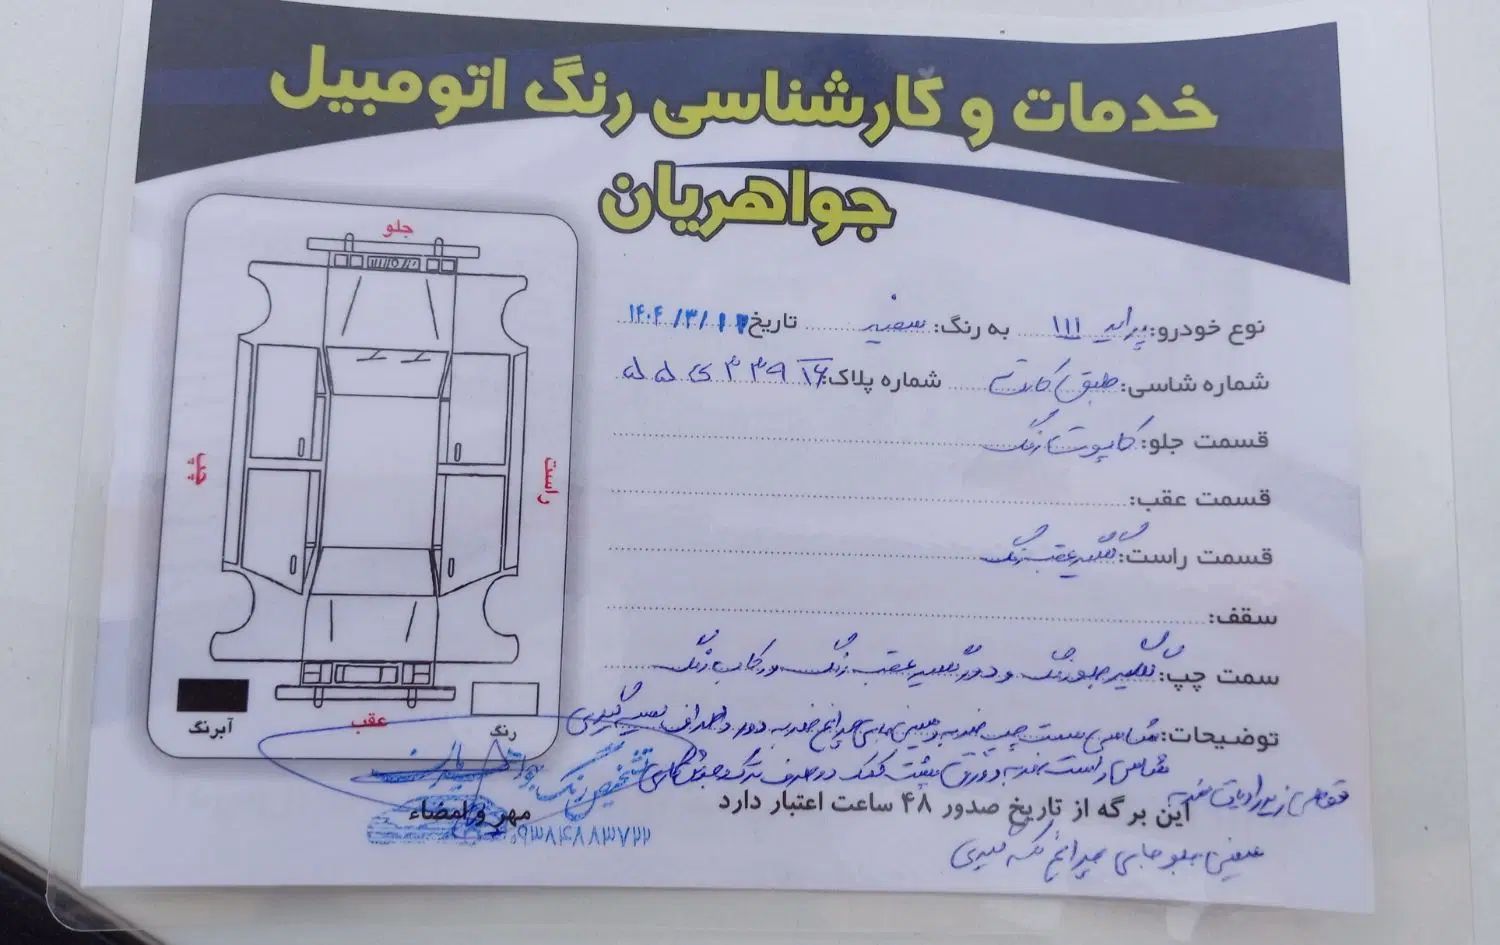 خدمات و کارشناسی رنگ اتومبیل
جواهریان
جلو
چپ
راست
عقب
آبرنگ
رنگ
نوع خودرو: پراید ۱۱۱ به رنگ: سفید تاریخ ۱۴۰۴/۳/۱۲
شماره شاسی: طبق کارت شماره پلاک:
قسمت جلو: کاپوت رنگ
قسمت عقب:
قسمت راست: گلگیر عقب رنگ
سقف:
سمت چپ: گلگیر جلو رنگ و دور گلگیر عقب رنگ و رکاب رنگ
توضیحات: شاسی سمت چپ ضربه و سینی جای چراغ ضربه دور و اطراف گیری
شاسی راست ضربه
این برگه از تاریخ صدور ۴۸ ساعت اعتبار دارد
سینی جلو جای چراغ
تشخیص رنگ جواهریان
مهر و امضاء
۰۹۳۸۴۸۸۳۷۲۲